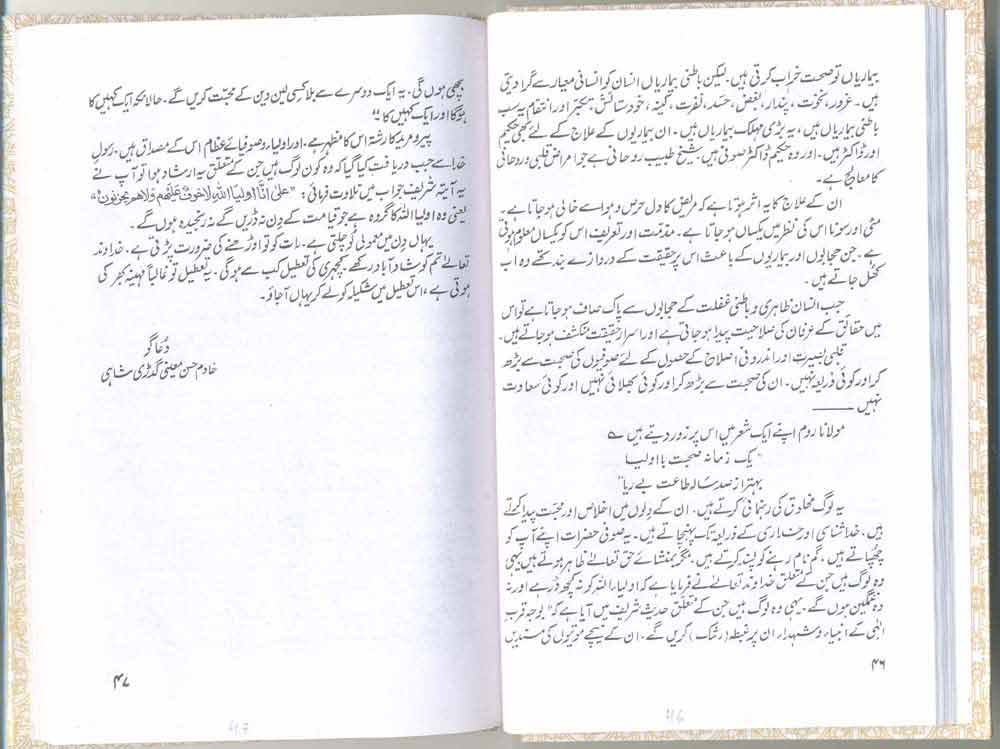 بیماریاں تو صحت خراب کرتی ہیں۔ لیکن باطنی بیماریاں انسان کو انسانی معیار سے گرا دیتی
ہیں۔ غرور، نخوت، پندار، بغض، حسد، نفرت، کینہ، خودستائش، تکبّر اور انتقام یہ سب
باطنی بیماریاں ہیں، یہ بڑی مہلک بیماریاں ہیں۔ ان بیماریوں کے علاج کے لئے بھی حکیم
اور ڈاکٹر ہیں۔ اور وہ حکیم ڈاکٹر صوفی ہیں۔ شیخ طبیب روحانی ہے جو امراض قلبی و روحانی
کا معالج ہے۔
ان کے علاج کا یہ اثر ہوتا ہے کہ مریض کا دل حرص و ہوا سے خالی ہو جاتا ہے۔
مٹی اور سونا اس کی نظر میں یکساں ہو جاتا ہے۔ مذمّت اور تعریف اس کو یکساں معلوم ہوتی
ہے۔ جن حجابوں اور بیماریوں کے باعث اس پر حقیقت کے دروازے بند تھے وہ اب
کھُل جاتے ہیں۔
جب انسان ظاہری و باطنی غفلت کے حجابوں سے پاک صاف ہو جاتا ہے تو اس
میں حقائق کے عرفان کی صلاحیت پیدا ہو جاتی ہے اور اسرارِ حقیقت منکشف ہو جاتے ہیں۔
قلبی بصیرت اور اندرونی اصلاح کے حصول کے لئے صوفیوں کی صحبت سے بڑھ
کر اور کوئی ذریعہ نہیں۔ ان کی صحبت سے بڑھ کر اور کوئی بھلائی نہیں اور کوئی سعادت
نہیں ———
مولانا روم اپنے ایک شعر میں اس پر زور دیتے ہیں ؎
"یک زمانہ صحبت با اولیا
بہتر از صد سالہ طاعت بے ریا"
یہ لوگ مخلوق کی رہنمائی کرتے ہیں۔ ان کے دِلوں میں اخلاص اور محبّت پیدا کرتے
ہیں۔ خداشناسی اور کے ذریعہ تک پہنچاتے ہیں۔ یہ صوفی حضرات اپنے آپ کو
چھُپاتے ہیں، گم نام رہنے کو پسند کرتے ہیں۔ مگر بمنشائے حق تعالےٰ ظاہر ہوتے ہیں یہی
وہ لوگ ہیں جن کے متعلق خداوند تعالےٰ نے فرمایا ہے کہ اولیاء اللہ کو نہ کچھ ڈر ہے اور نہ
وہ غمگین ہوں گے۔ یہی وہ لوگ ہیں جن کے متعلق حدیث شریف میں آیا ہے کہ "بوجہ قرب
الٰہی کے انبیاء و شہداء ان پر غبطہ (رشک) کریں گے۔ ان کے نیچے موتیوں کی مسندیں
۴۶
46
بچھی ہوں گی۔ یہ ایک دوسرے سے بلا کسی لین دین کے محبّت کریں گے۔ حالانکہ ایک کہیں کا
ہوگا اور ایک کہیں کا"۔
پیر و مرید کا رشتہ اس کا مظہر ہے، اور اولیاء و صوفیائے عظام اس کے مصداق ہیں۔ رسولِ
خدا سے جب دریافت کیا گیا کہ وہ کون لوگ ہیں جن کے متعلق یہ ارشاد ہوا تو آپ نے
یہ آیتہ شریف جواب میں تلاوت فرمائی: اولیاء اللہ لا خوف علیھم ولا ھم یحزنون"
یعنی وہ اولیا اللہ کا گروہ ہے جو قیامت کے دن نہ ڈریں گے نہ رنجیدہ ہوں گے۔
یہاں دِن میں معمولی لُو چلتی ہے۔ رات کو تو اوڑھنے کی ضرورت پڑتی ہے۔ خداوند
تعالےٰ تم کو شاد آباد رکھے کچہری کی تعطیل کب سے ہوگی۔ یہ تعطیل تو غالباً مہینہ بھر کی
ہوتی ہے، اس تعطیل میں شکیلہ کو لے کر یہاں آجاؤ۔
دُعا گو
خادم حسن معینی گدڑی شاہی
۴۷
47